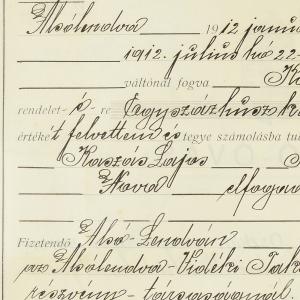 Alsólendva 1912 janu
1912. július hó 22-
váltónál fogva K
rendelet- é - re Egyszázhusz k
értékét felvettem és tegye számolásba tu
Kaszás Lajos
Nova elfoga
Fizetendő Alsó-Lendván
az Alsólendva-Vidéki Tak
részvény-társaságnál